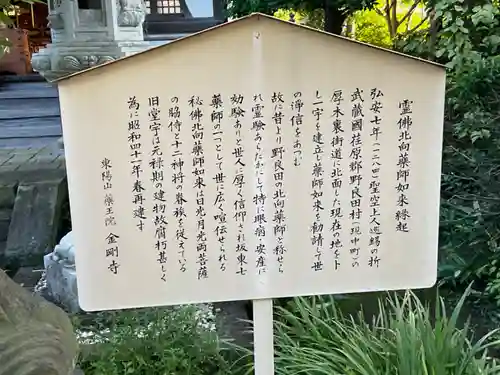 霊佛北向藥師如來縁起
弘安七年（一二八四）聖空上人巡錫の折
武蔵國荏原郡野良田村（現中町）の
厚木裏街道に北面した現在の地をト
し一宇を建立し藥師如來を勧請して世
の浄信をあつむ
故に昔より野良田の北向藥師と称せら
れ霊験あらたかにして特に眼病、安産に
効験ありと世人に厚く信仰され坂東七
藥師の一として世に広く宣伝せらる
秘佛北向藥師如來は日光月光両菩薩
の脇侍と十二神将の眷族を従えている
旧堂宇は元禄期の建物故腐朽甚しく
為に昭和四十一年春再建す
東陽山 藥王院 金剛寺